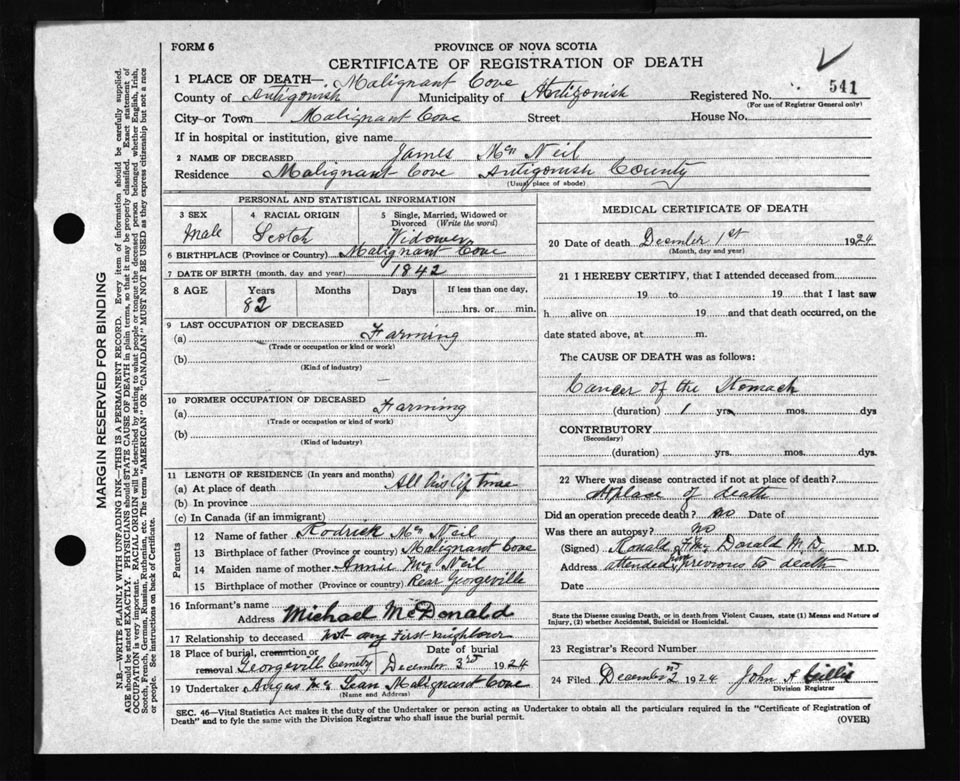 FORM 6
PROVINCE OF NOVA SCOTIA
CERTIFICATE OF REGISTRATION OF DEATH
1 PLACE OF DEATH— Malignant Cove
County of Antigonish Municipality of Antigonish Registered No. 541
(For use of Registrar General only)
City or Town Malignant Cove Street House No.
If in hospital or institution, give name
2 NAME OF DECEASED James Mc Neil
Residence Malignant Cove Antigonish County
(Usual place of abode)
PERSONAL AND STATISTICAL INFORMATION
3 SEX 4 RACIAL ORIGIN 5 Single, Married, Widowed or Divorced (Write the word)
Male Scotch Widower
6 BIRTHPLACE (Province or Country) Malignant Cove
7 DATE OF BIRTH (month, day and year) 1842
8 AGE Years Months Days If less than one day,
82 hrs. or min.
9 LAST OCCUPATION OF DECEASED
(a) Farming
(Trade or occupation or kind of work)
(b)
(Kind of industry)
10 FORMER OCCUPATION OF DECEASED
(a) Farming
(Trade or occupation or kind of work)
(b)
(Kind of industry)
11 LENGTH OF RESIDENCE (In years and months)
(a) At place of death All his life time
(b) In province
(c) In Canada (if an immigrant)
Parents
12 Name of father Rodrick Mc Neil
13 Birthplace of father (Province or country) Malignant Cove
14 Maiden name of mother Annie Mc Neil
15 Birthplace of mother (Province or country) Rear Georgeville
16 Informant's name
Address Michael McDonald
17 Relationship to deceased not any First-neighbour
18 Place of burial, cremation or removal Date of burial
Georgevill Cemety December 3rd 1924
19 Undertaker Angus Mc Lean Malignant Cove
(Name and Address)
MEDICAL CERTIFICATE OF DEATH
20 Date of death December 1st 1924
(Month, day and year)
21 I HEREBY CERTIFY, that I attended deceased from
19 to 19 that I last saw
h alive on 19 and that death occurred, on the
date stated above, at m.
The CAUSE OF DEATH was as follows:
Cancer of the Stomach
(duration) 1 yrs. mos. dys
CONTRIBUTORY
(Secondary)
(duration) yrs. mos. dys.
22 Where was disease contracted if not at place of death?
At place of death
Did an operation precede death? no Date of
Was there an autopsy? no
(Signed) Ronald Mc Donald M.D. M.D.
Address attended previous to death
Date
State the Disease causing Death, or in death from Violent Causes, state (1) Means and Nature of
Injury, (2) whether Accidental, Suicidal or Homicidal.
23 Registrar's Record Number
24 Filed December 2nd 1924 John A Gillis
Division Registrar
SEC. 46—Vital Statistics Act makes it the duty of the Undertaker or person acting as Undertaker to obtain all the particulars required in the "Certificate of Registration of
Death" and to fyle the same with the Division Registrar who shall issue the burial permit. (OVER)
MARGIN RESERVED FOR BINDING
N.B.—WRITE PLAINLY WITH UNFADING INK—THIS IS A PERMANENT RECORD. Every item of information should be carefully supplied.
AGE should be stated EXACTLY. PHYSICIANS should STATE CAUSE OF DEATH in plain terms, so that it may be properly classified. Exact statement of
OCCUPATION is very important. RACIAL ORIGIN will be described by stating to what people or tongue the deceased person belonged whether English, Irish,
Scotch, French, German, Russian, Ruthenian, etc. The terms "AMERICAN" or "CANADIAN" MUST NOT BE USED as they express citizenship but not a race
or people. See instructions on back of Certificate.